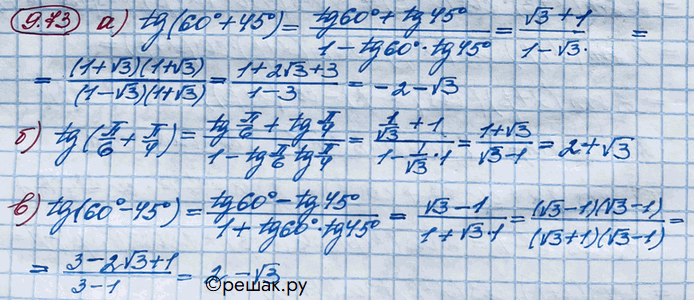 9.73 а) tg(60°+45°) = (tg60°+tg45°)/(1-tg60°·tg45°) = (√3+1)/(1-√3· =
= ((1+√3)(1+√3))/((1-√3)(1+√3)) = (1+2√3+3)/(1-3) = -2-√3
б) tg(π/6+π/4) = (tg π/6 + tg π/4)/(1-tg π/6 tg π/4) = (1/√3 + 1)/(1-1/√3·1) = (1+√3)/(√3-1) = 2+√3
в) tg(60°-45°) = (tg60°-tg45°)/(1+tg60°·tg45°) = (√3-1)/(1+√3·1) = ((√3-1)(√3-1))/((√3+1)(√3-1)) =
= (3-2√3+1)/(3-1) = 2-√3
©решак.ру